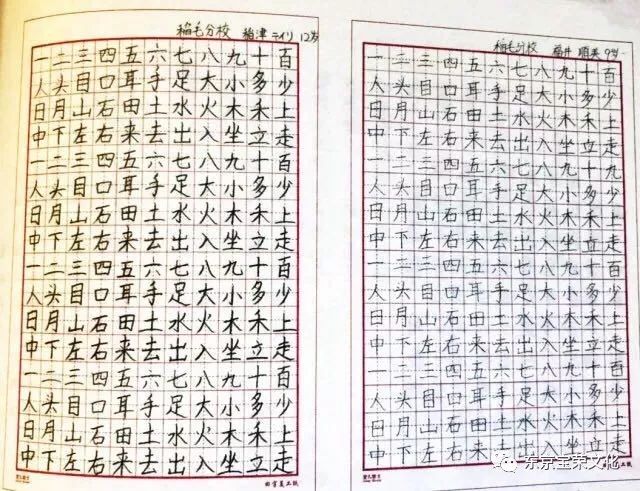 稲毛分校 稲津 テイリ 12岁
一二三四五六七八九十百
人头目口耳手足大小多少
日月山石田土水火木禾上
中下左右来去出入坐立走
一二三四五六七八九十百
人头目口耳手足大小多少
日月山石田土水火木禾上
中下左右来去出入坐立走
一二三四五六七八九十百
人头目口耳手足大小多少
日月山石田土水火木禾上
中下左右来去出入坐立走
一二三四五六七八九十百
人头目口耳手足大小多少
日月山石田土水火木禾上
中下左右来去出入坐立走
稲毛分校 福井 順美 9岁
一二三四五六七八九十百
人头目口耳手足大小多少
日月山石田土水火木禾上
中下左右来去出入坐立走
一二三四五六七八九十九
人头目口耳手足大小多少
日月山石田土水火木禾上
中下左右来去出入坐立走
一二三四五六七八九十百
人头目口耳手足大小多少
日月山石田土水火木禾上
中下左右来去出入坐立走
一二三四五六七八九十百
人头目口耳手足大小多少
日月山石田土水火木禾上
中下左右来去出入坐立走
东京宝荣文化